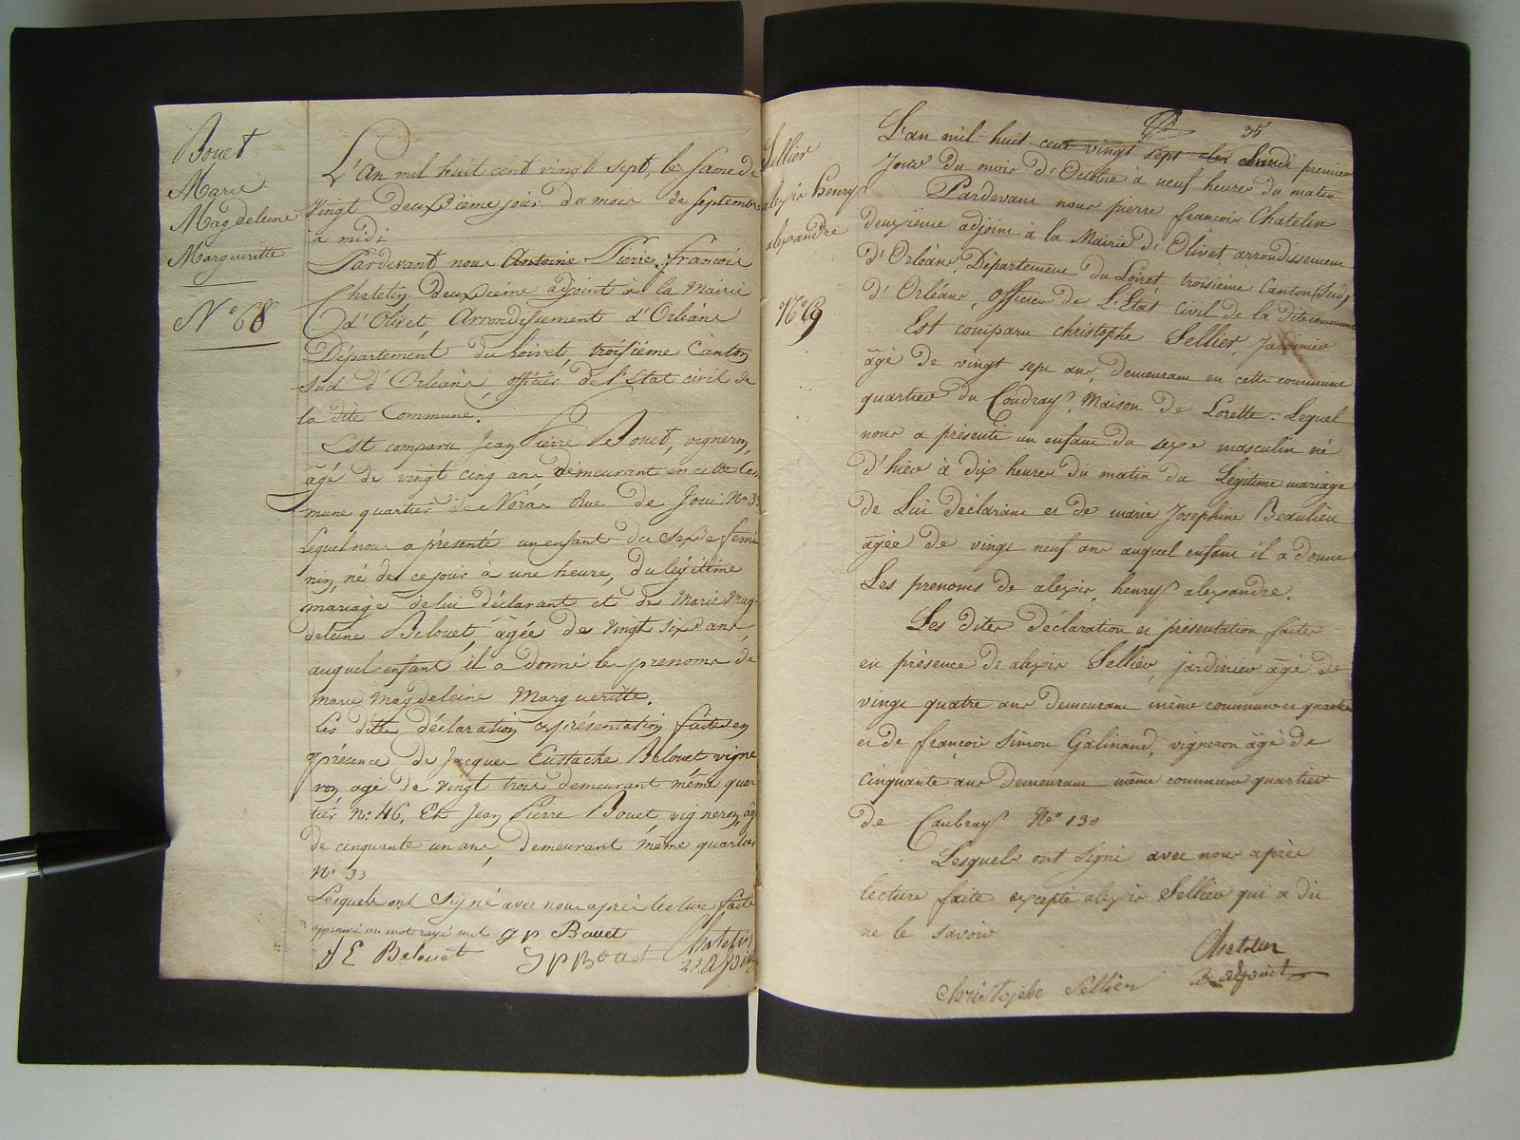 Bouet
Marie
Magdeleine
Margueritte
N° 68
L'An mil huit cent vingt sept, le samedi
vingt deuxième jour du mois de septembre
à midi
Pardevant nous Antoine Pierre françois
Chatelin deuxième adjoint à la Mairie
d'Olivet, Arrondissement d'Orléans
Département du Loiret, troisième Canton
sud d'Orléans, officier de l'Etat civil de
la dite Commune.
Est comparu Jean Pierre Bouet, vigneron,
âgé de vingt cinq ans demeurant en cette Com
mune quartier de Noras Rue de Joui N° 33
Lequel nous a présenté un enfant du sexe femi
nin, né de ce jour à une heure, du légitime
mariage de lui déclarant et de Marie Mag
deleine Belouet, âgée de vingt six ans
auquel enfant il a donné les prenoms de
marie magdeleine Margueritte.
les dites déclaration et présentation faites en
présence de Jacques Eustache Belouet vigne
ron agé de vingt trois demeurant même quar
tier N° 46, Et Jean Pierre Bouet, vigneron, âgé
de cinquante un ans, demeurant même quartier
N° 33
Lesquels ont signé avec nous après lecture faite
approuvé un mot rayé nul g p Bouet
J E Belouet J P Bouet Chatelin
2e Adjoint
Sellier
alexis henry
alexandre
N° 69
35
L'an mil-huit cent vingt sept le Lundi premier
Jour du mois d'Octobre à neuf heures du matin
Pardevant nous pierre françois Chatelin
deuxieme adjoint à la Mairie d'Olivet arrondissement
d'Orléans, Département du Loiret, troisième Canton (Sud)
d'Orléans, officier de L'Etat Civil de la dite commune
Est comparu christophe Sellier, Jardinier
âgé de vingt sept ans, demeurant en cette commune
quartier du Coudray, Maison de Lorette. Lequel
nous a présenté un enfant du sexe masculin né
d'hier à dix heures du matin du Légitime mariage
de Lui déclarant et de marie Josephine Beaulieu
âgée de vingt neuf ans auquel enfant il a donné
Les prenoms de alexis, henry alexandre.
Les dites déclaration et présentation faites
en présence de alexis Sellier, jardinier âgé de
vingt quatre ans demeurant même commune et quartier
et de françois Simon Galinand, vigneron âgé de
cinquante ans demeurant même commune quartier
de Caubray N° 130
Lesquels ont signé avec nous après
lecture faite excepté alexis Sellier qui a dit
ne le savoir
Chatelin
2e adjoint
christophe Sellier